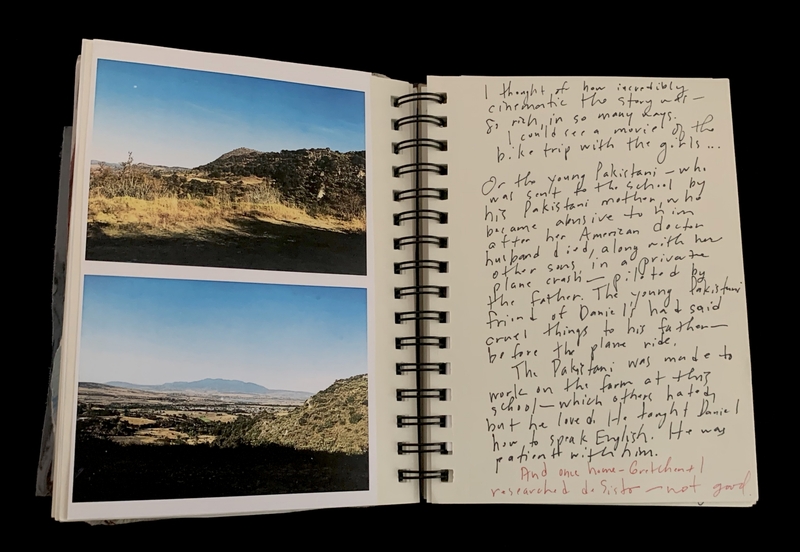 I thought of how incredibly
cinematic the story was—
so rich, in so many ways.
I could see a movie of the
bike trip with the girls...
Or the young Pakistani—who
was sent to the school by
his Pakistani mother, who
became abusive to him
after her American doctor
husband died, along with her
other sons, in a private
plane crash—piloted by
the father. The young Pakistani
friend of Daniel's had said
cruel things to his father—
before the plane ride.
The Pakistani was made to
work on the farm at this
school—which others hated,
but he loved. He taught Daniel
how to speak English. He was
patient with him.
And once home—Gretchen + I
researched deSisto—not good.